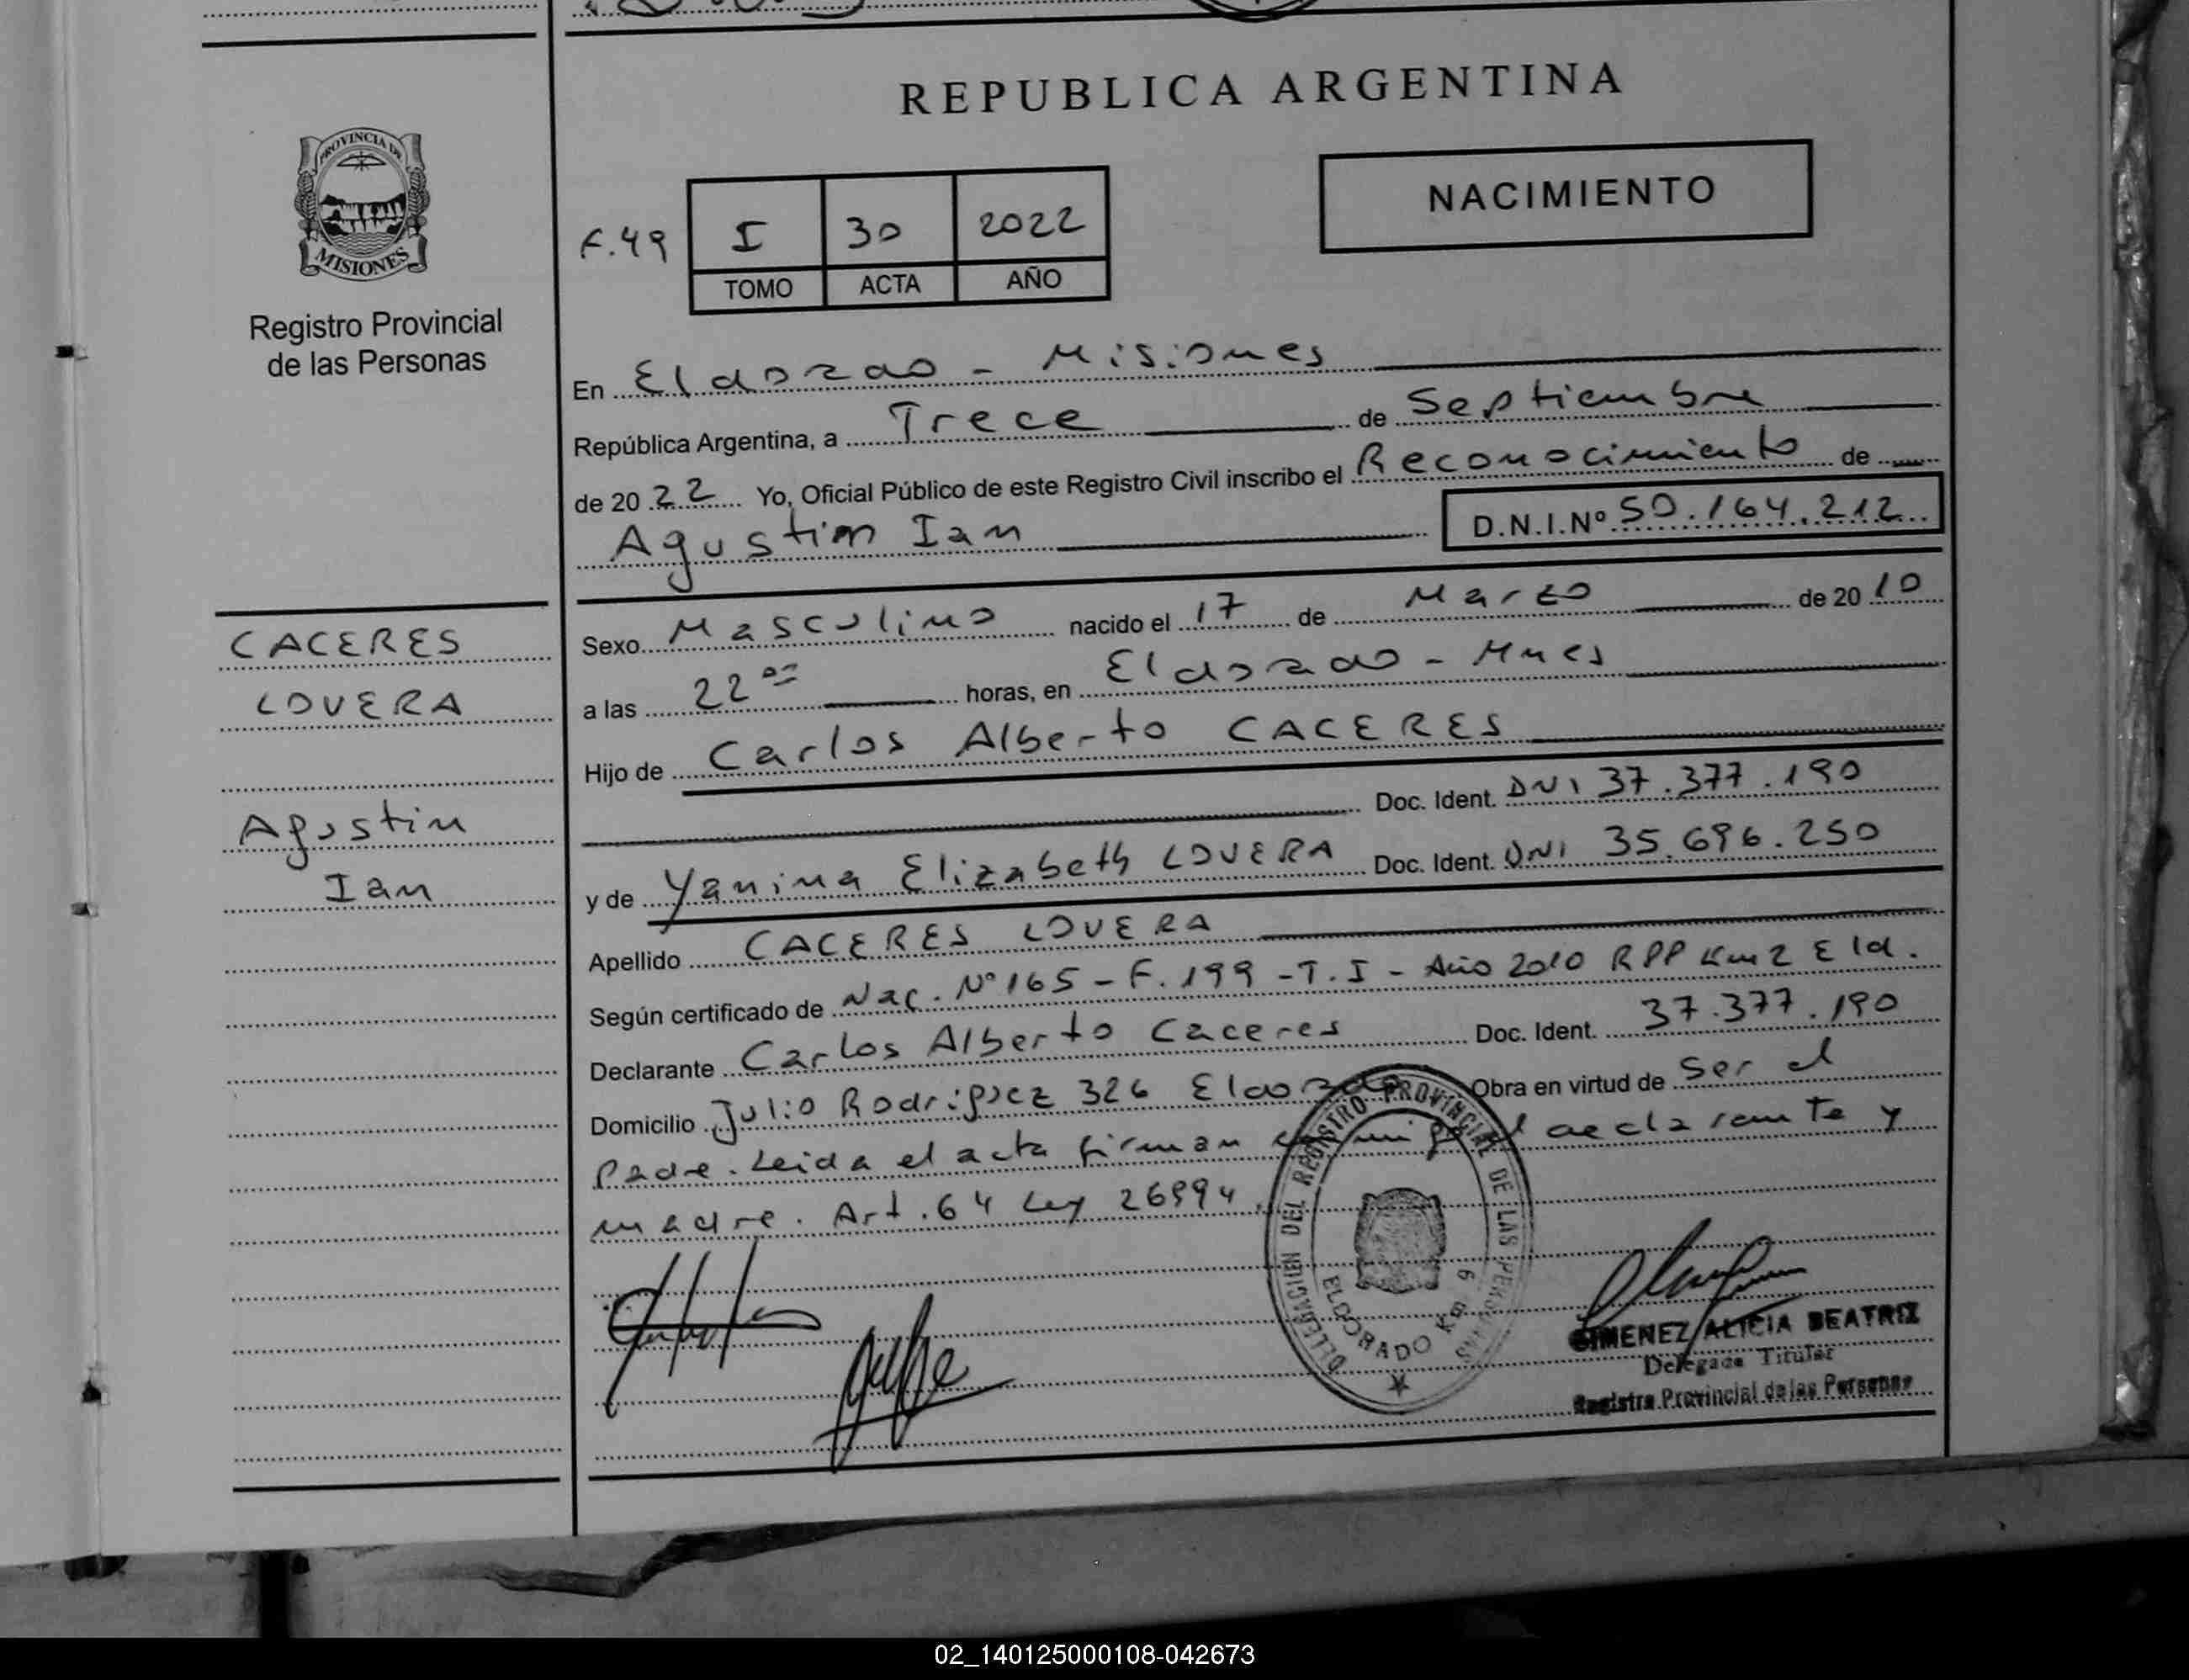 REPUBLICA ARGENTINA
PROVINCIA DE
MISIONES
Registro Provincial
de las Personas
NACIMIENTO
F.49 I 30 2022
TOMO ACTA AÑO
En Eldorado - Misiones
República Argentina, a Trece de Septiembre
de 2022 Yo, Oficial Público de este Registro Civil inscribo el Reconocimiento de
Agustin Ian D.N.I.Nº 50.164.212
Sexo Masculino nacido el 17 de Marzo de 2010
a las 22 00 horas, en Eldorado - Mnes
Hijo de Carlos Alberto CACERES
Doc. Ident. DNI 37.377.190
y de Yanina Elizabeth LOVERA Doc. Ident. DNI 35.696.250
Apellido CACERES LOVERA
Según certificado de Nac. Nº 165 - F. 199 - T. I - Año 2010 RPP Km 2 Eld.
Declarante Carlos Alberto Caceres Doc. Ident. 37.377.190
Domicilio Julio Rodriguez 326 Eldorado Obra en virtud de Ser el
Padre. Leida el acta firman declarante y
madre. Art. 64 Ley 26994
CACERES
LOVERA
Agustin
Ian
DELEGACION DEL REGISTRO PROVINCIAL DE LAS PERSONAS
ELDORADO KM
GIMENEZ ALICIA BEATRIZ
Delegada Titular
Registro Provincial de las Personas
02_140125000108-042673